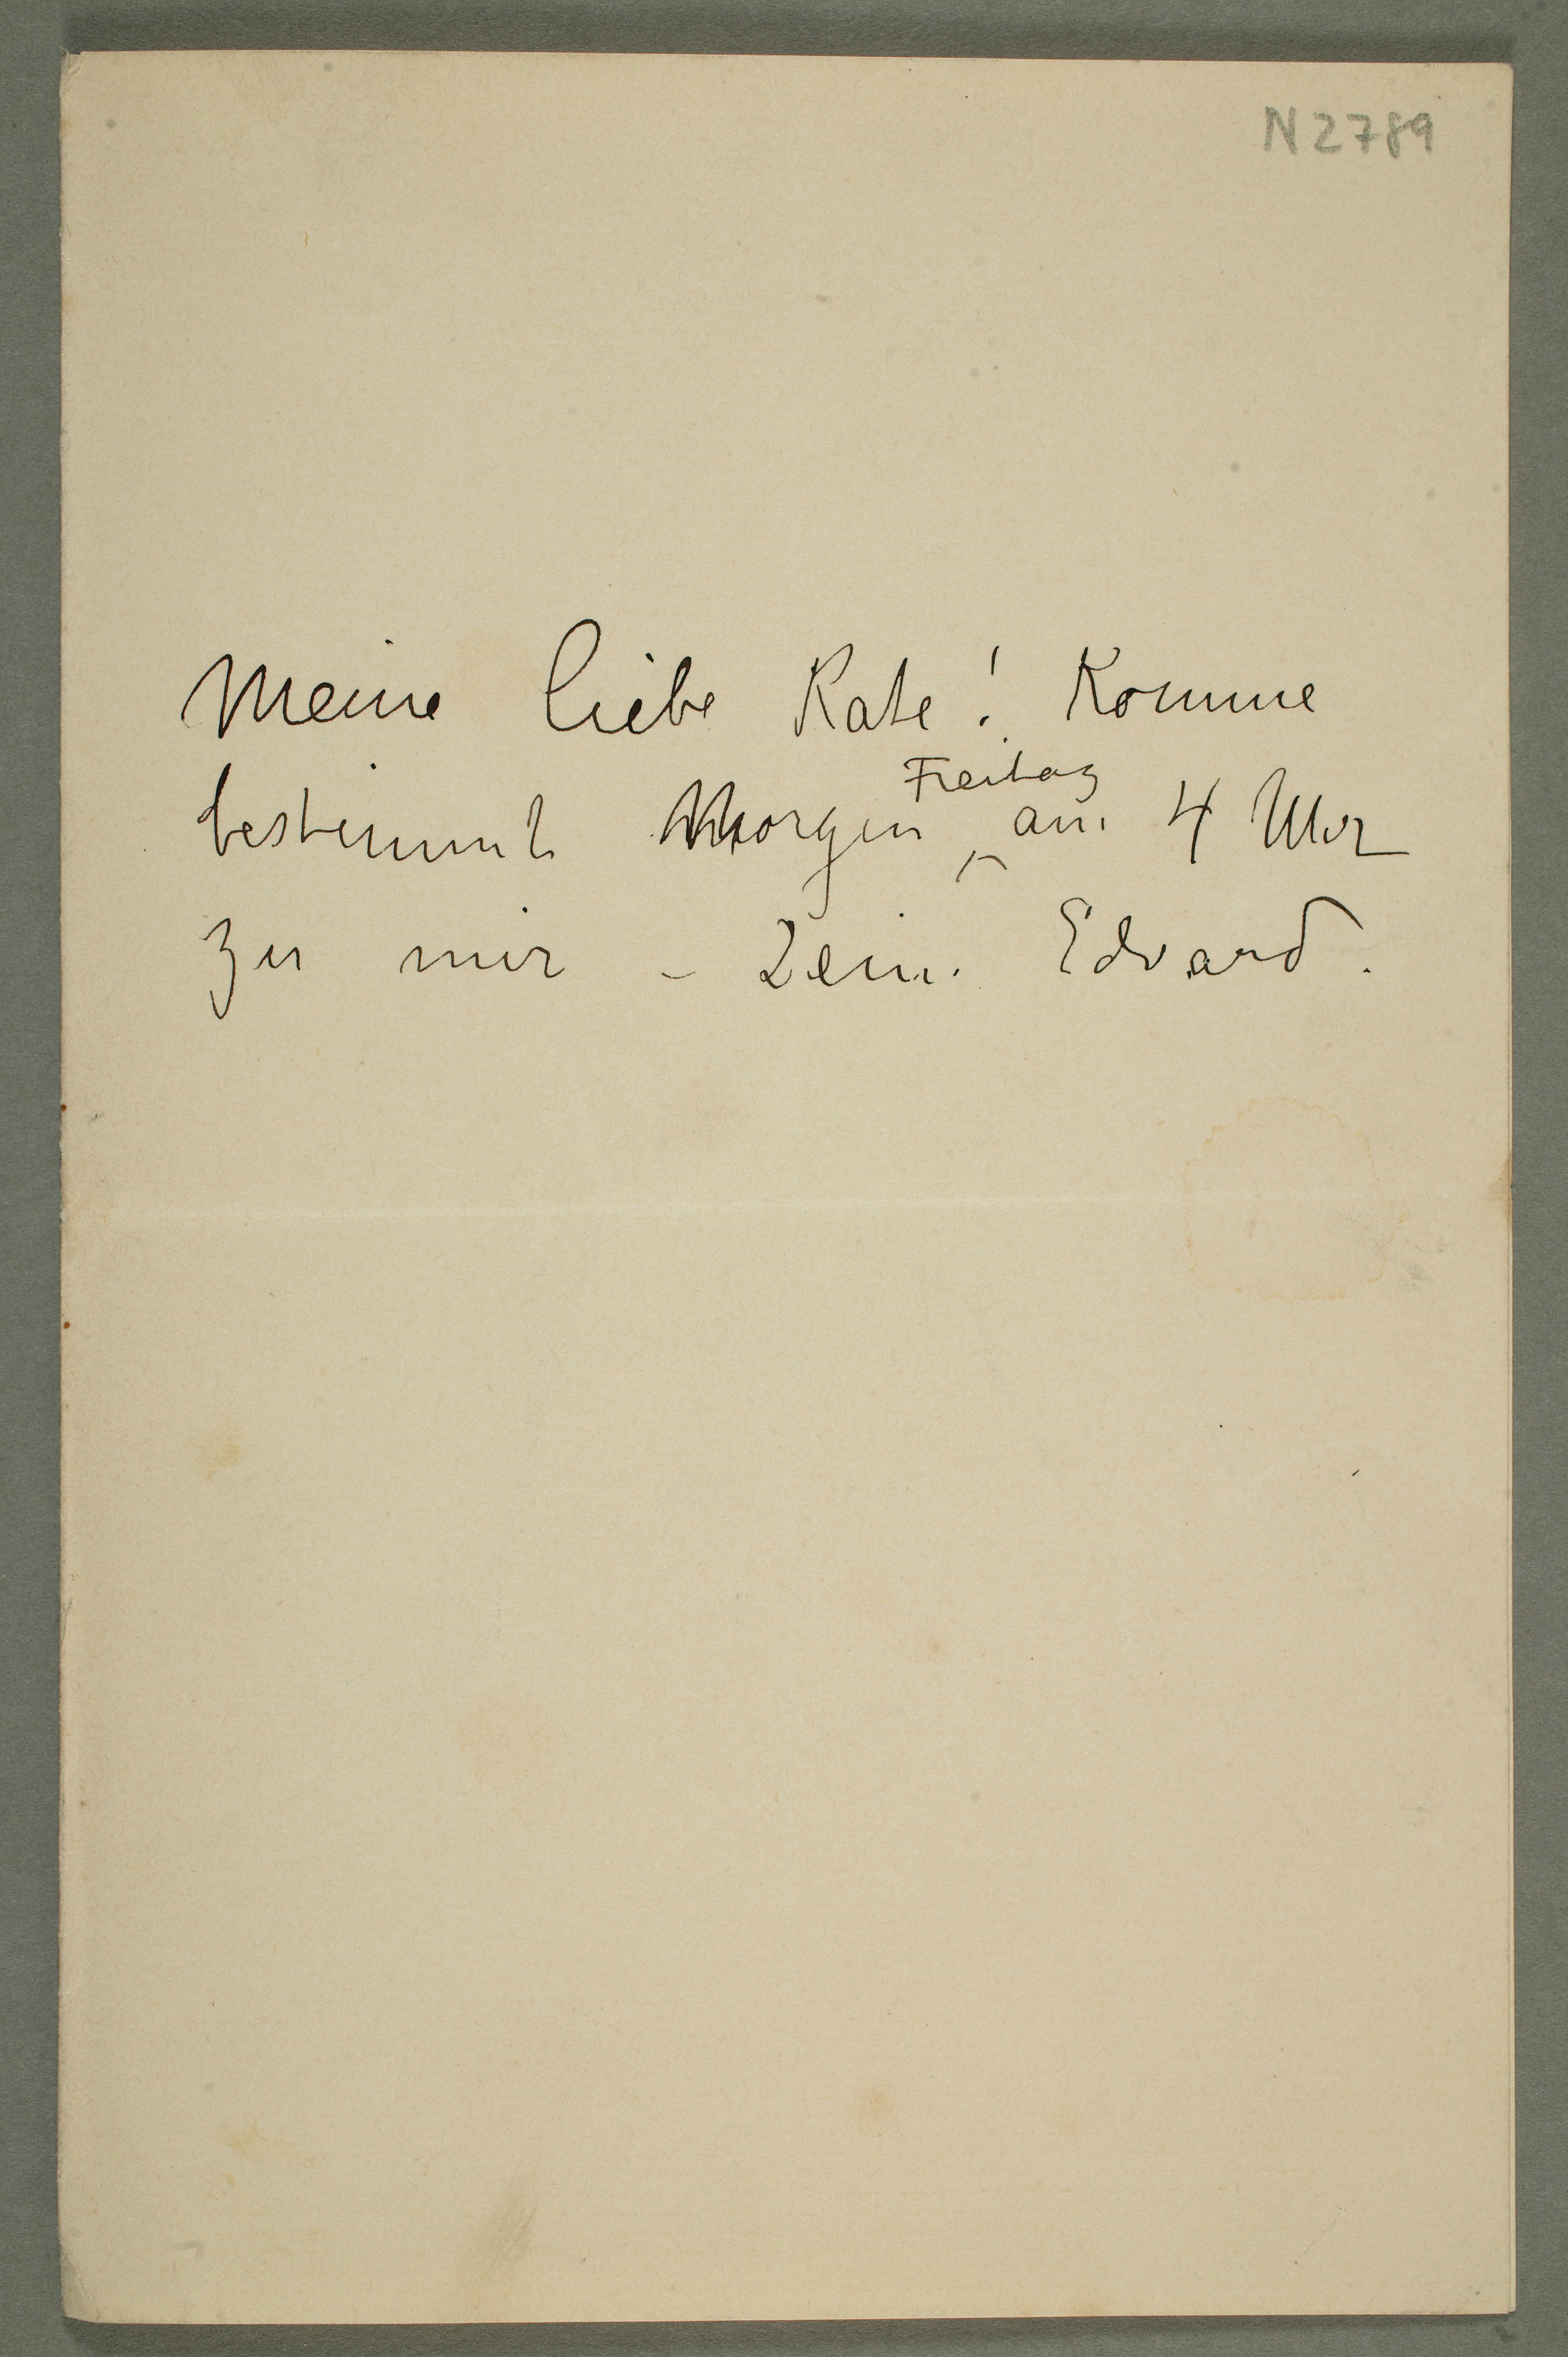 N 2789
Meine liebe Kate! Komme
Freitag
bestimmt Morgen am 4 Uhr
zu mir – Dein Edvard.